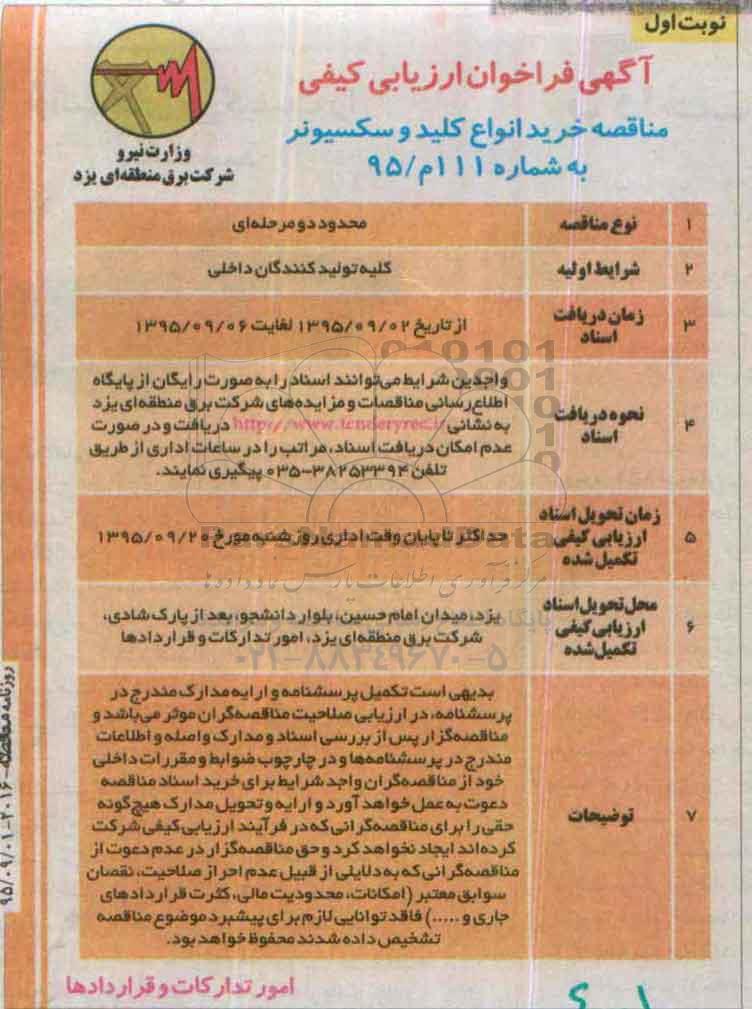 نوبت اول
آگهی فراخوان ارزیابی کیفی
مناقصه خرید انواع کلید و سکسیونر
به شماره ۱۱۱م/۹۵
وزارت نیرو
شرکت برق منطقه‌ای یزد
۱ نوع مناقصه محدود دو مرحله‌ای
۲ شرایط اولیه کلیه تولید کنندگان داخلی
۳ زمان دریافت اسناد از تاریخ ۱۳۹۵/۰۹/۰۲ لغایت ۱۳۹۵/۰۹/۰۶
۴ نحوه دریافت اسناد
واجدین شرایط می‌توانند اسناد را به صورت رایگان از پایگاه
اطلاع‌رسانی مناقصات و مزایده‌های شرکت برق منطقه‌ای یزد
به نشانی http://www.tenderyrec.ir دریافت و در صورت
عدم امکان دریافت اسناد، مراتب را در ساعات اداری از طریق
تلفن ۳۸۲۵۳۳۹۴-۰۳۵ پیگیری نمایند.
۵ زمان تحویل اسناد ارزیابی کیفی تکمیل شده
حداکثر تا پایان وقت اداری روز شنبه مورخ ۱۳۹۵/۰۹/۲۰
۶ محل تحویل اسناد ارزیابی کیفی تکمیل‌شده
یزد، میدان امام حسین، بلوار دانشجو، بعد از پارک شادی،
شرکت برق منطقه‌ای یزد، امور تدارکات و قراردادها
۷ توضیحات
بدیهی است تکمیل پرسشنامه و ارایه مدارک مندرج در
پرسشنامه، در ارزیابی صلاحیت مناقصه‌گران موثر می‌باشد و
مناقصه‌گزار پس از بررسی اسناد و مدارک واصله و اطلاعات
مندرج در پرسشنامه‌ها و در چارچوب ضوابط و مقررات داخلی
خود از مناقصه‌گران واجد شرایط برای خرید اسناد مناقصه
دعوت به عمل خواهد آورد و ارایه و تحویل مدارک هیچ‌گونه
حقی را برای مناقصه‌گرانی که در فرآیند ارزیابی کیفی شرکت
کرده‌اند ایجاد نخواهد کرد و حق مناقصه‌گزار در عدم دعوت از
مناقصه‌گرانی که به دلایلی از قبیل عدم احراز صلاحیت، نقصان
سوابق معتبر (امکانات، محدودیت مالی، کثرت قراردادهای
جاری و .....) فاقد توانایی لازم برای پیشبرد موضوع مناقصه
تشخیص داده شدند محفوظ خواهد بود.
امور تدارکات و قراردادها
روزنامه مناقصه - ۲۰۱۶ - ۹۵/۰۹/۰۱
مرکز فرآوری اطلاعات پارس نماد داده‌ها
۰۲۱-۸۸۳۴۹۶۷۰-۵